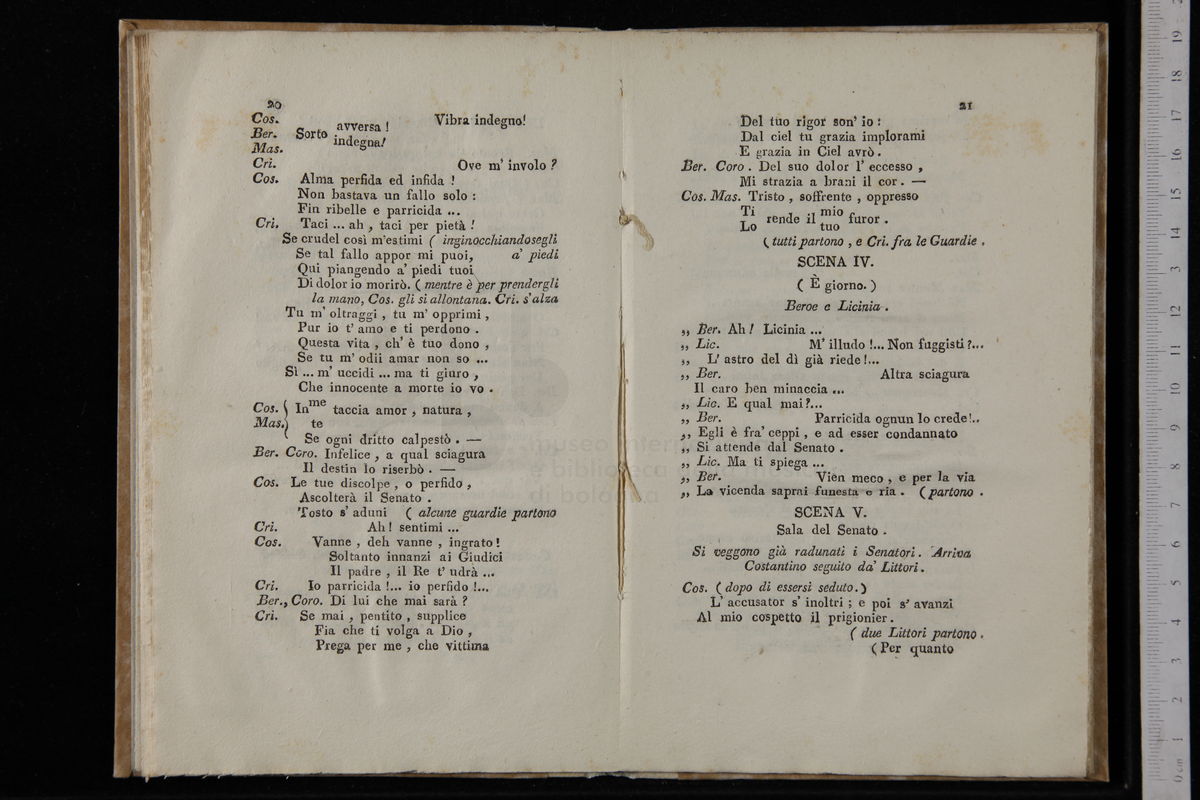 20
Cos. Vibra indegno!
Ber. Sorte avversa !
Mas. indegna!
Cri. Ove m' involo ?
Cos. Alma perfida ed infida !
Non bastava un fallo solo :
Fin ribelle e parricida ...
Cri. Taci ... ah , taci per pietà !
Se crudel così m'estimi ( inginocchiandosegli
Se tal fallo appor mi puoi, a' piedi
Qui piangendo a' piedi tuoi
Di dolor io morirò. ( mentre è per prendergli
la mano, Cos. gli si allontana. Cri. s'alza
Tu m' oltraggi , tu m' opprimi ,
Pur io t' amo e ti perdono .
Questa vita , ch' è tuo dono ,
Se tu m' odii amar non so ...
Sì ... m' uccidi ... ma ti giuro ,
Che innocente a morte io vo .
Cos. ( In me taccia amor , natura ,
Mas. ) te
Se ogni dritto calpestò . —
Ber. Coro. Infelice , a qual sciagura
Il destin lo riserbò . —
Cos. Le tue discolpe , o perfido ,
Ascolterà il Senato .
Tosto s' aduni ( alcune guardie partono
Cri. Ah ! sentimi ...
Cos. Vanne , deh vanne , ingrato !
Soltanto innanzi ai Giudici
Il padre , il Re t' udrà ...
Cri. Io parricida !... io perfido !...
Ber., Coro. Di lui che mai sarà ?
Cri. Se mai , pentito , supplice
Fia che ti volga a Dio ,
Prega per me , che vittima
21
Del tuo rigor son' io :
Dal ciel tu grazia implorami
E grazia in Ciel avrò .
Ber. Coro . Del suo dolor l' eccesso ,
Mi strazia a brani il cor . —
Cos. Mas. Tristo , soffrente , oppresso
Ti rende il mio furor .
Lo tuo
( tutti partono , e Cri. fra le Guardie .
SCENA IV.
( È giorno. )
Beroe e Licinia .
,, Ber. Ah ! Licinia ...
,, Lic. M' illudo !... Non fuggisti ?...
,, L' astro del dì già riede !...
,, Ber. Altra sciagura
Il caro ben minaccia ...
,, Lic. E qual mai ?...
,, Ber. Parricida ognun lo crede !..
,, Egli è fra' ceppi , e ad esser condannato
,, Si attende dal Senato .
,, Lic. Ma ti spiega ...
,, Ber. Vien meco , e per la via
,, La vicenda saprai funesta e ria . ( partono .
SCENA V.
Sala del Senato .
Si veggono già radunati i Senatori . Arriva
Costantino seguito da' Littori .
Cos. ( dopo di essersi seduto. )
L' accusator s' inoltri ; e poi s' avanzi
Al mio cospetto il prigionier .
( due Littori partono .
( Per quanto